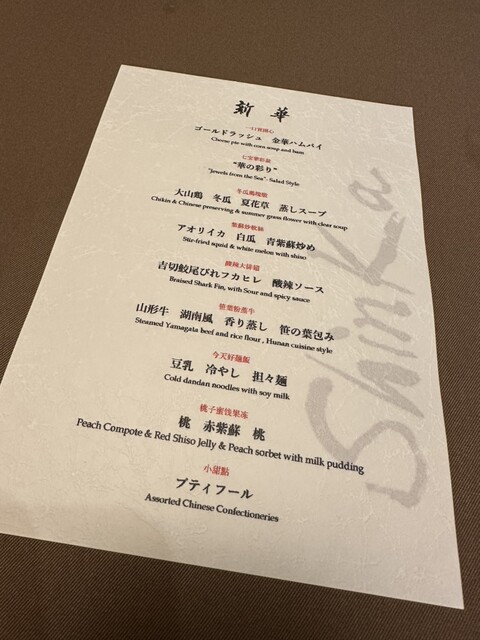 新華
一口賛開心
ゴールドラッシュ 金華ハムパイ
Cheese pie with corn soup and ham
七宝華彩盆
"華の彩り"
"Jewels from the Sea"- Salad Style
冬瓜鶏塊燉
大山鶏 冬瓜 夏花草 蒸しスープ
Chikin & Chinese preserving & summer grass flower with clear soup
紫蘇炒軟絲
アオリイカ 白瓜 青紫蘇炒め
Stir-fried squid & white melon with shiso
酸辣大排翅
吉切鮫尾びれフカヒレ 酸辣ソース
Braised Shark Fin, with Sour and spicy sauce
笹葉粉蒸牛
山形牛 湖南風 香り蒸し 笹の葉包み
Steamed Yamagata beef and rice flour , Hunan cuisine style
今天好麺飯
豆乳 冷やし 担々麺
Cold dandan noodles with soy milk
桃子蜜饯果冻
桃 赤紫蘇 桃
Peach Compote & Red Shiso Jelly & Peach sorbet with milk pudding
小甜點
プティフール
Assorted Chinese Confectioneries
Shinka